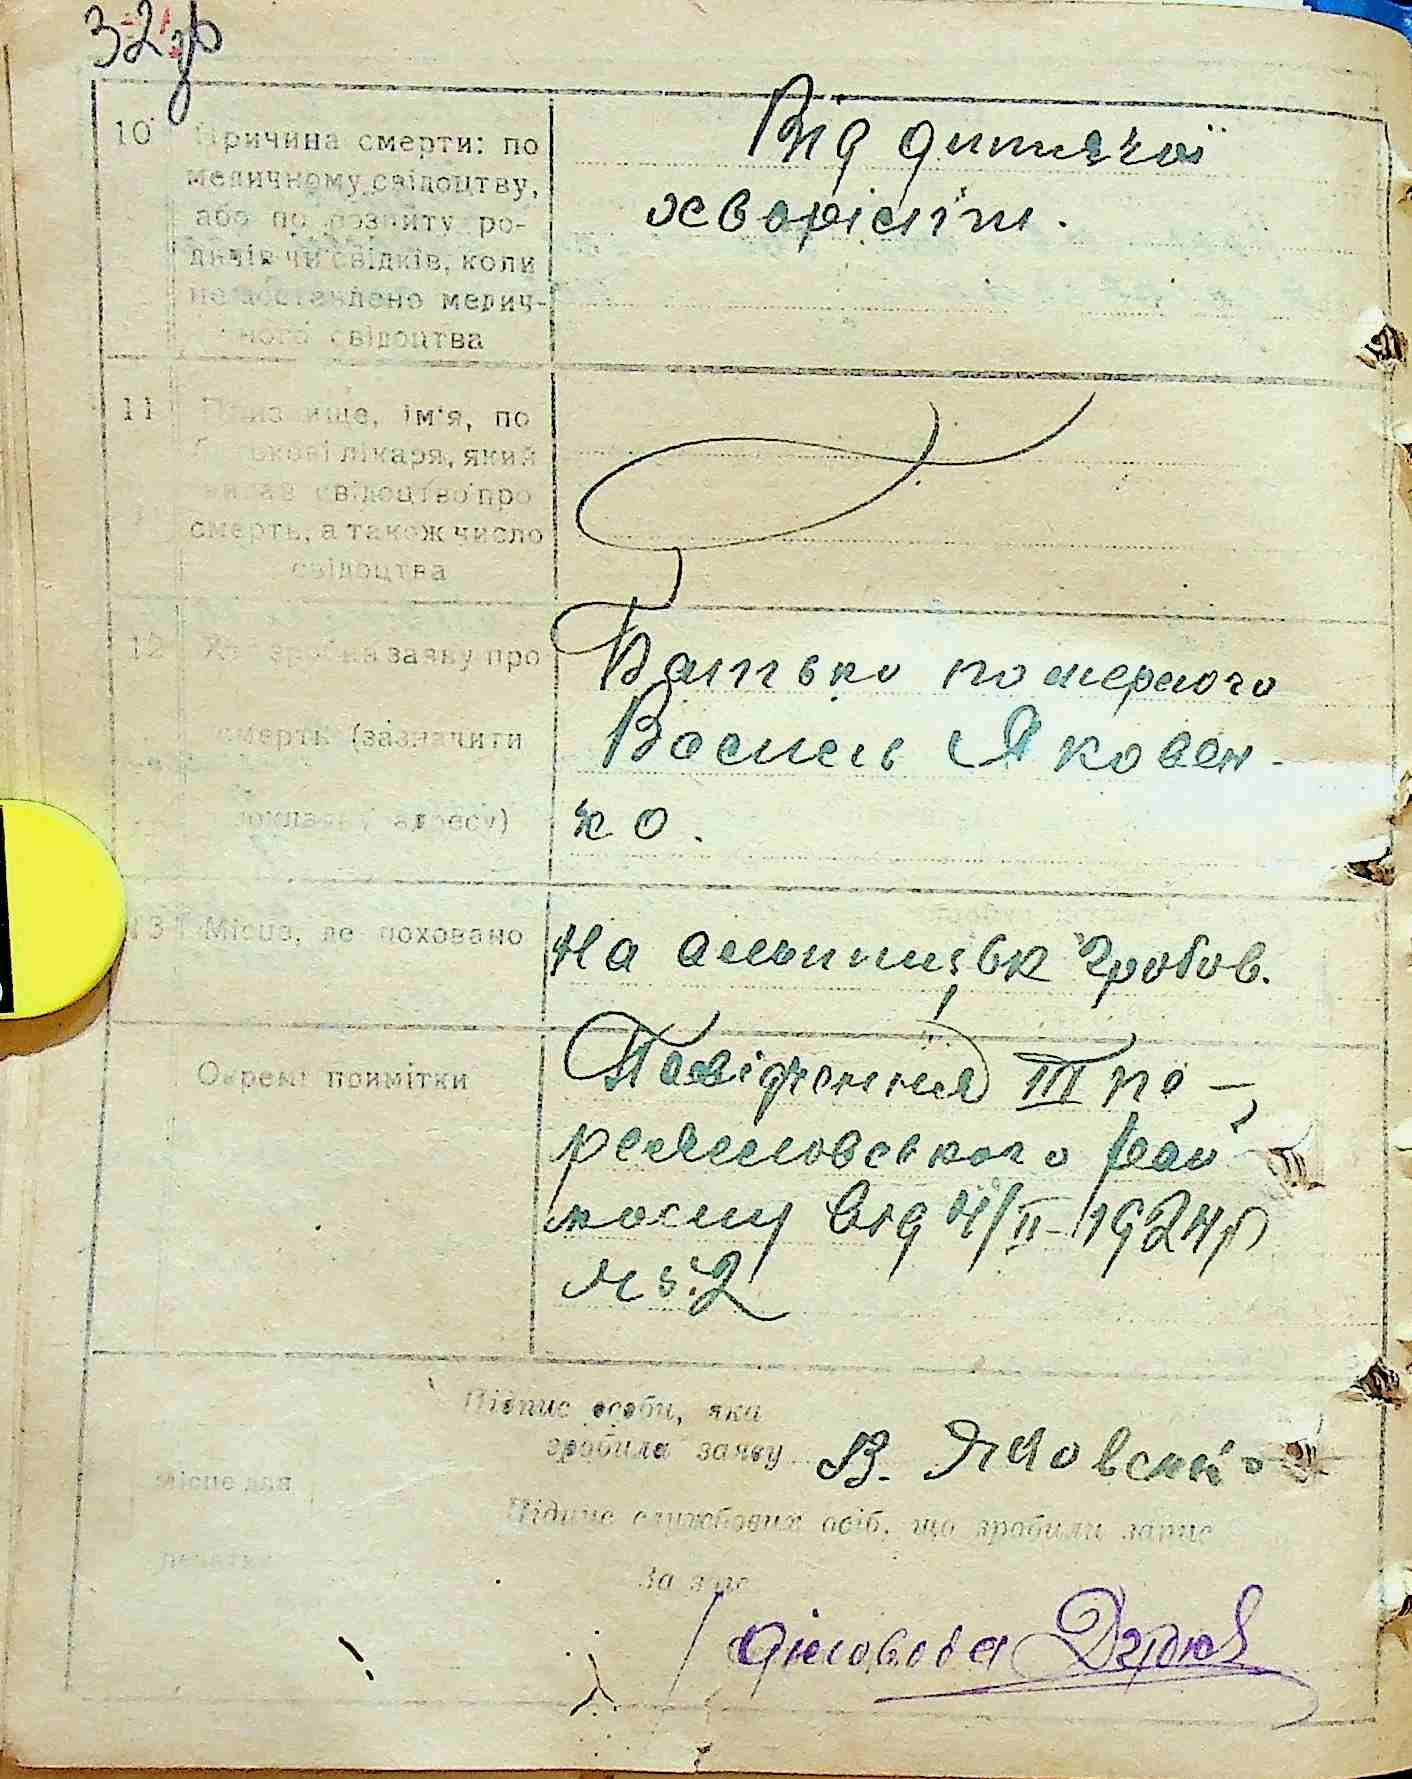 32 зв
10 Причина смерти: по
медичному свідоцтву,
або по розпиту ро-
дичів чи свідків, коли
не доставлено медич-
ного свідоцтва
Від дитячої
хворісти.
11 Прізвище, ім'я, по
батькові лікаря, який
видав свідоцтво про
смерть, а також число
свідоцтва
12 Хто зробив заяву про
смерть (зазначити
докладну адресу)
Батько померлого
Василь Яковен-
ко.
13 Місце, де поховано
На гробов.
Окремі примітки
III пе-
рай
від 4/II-1924р
№ 2
Підпис особи, яка
зробила заяву В.
Місце для
печатки
Підпис службових осіб, що зробили запис
За
Діловода